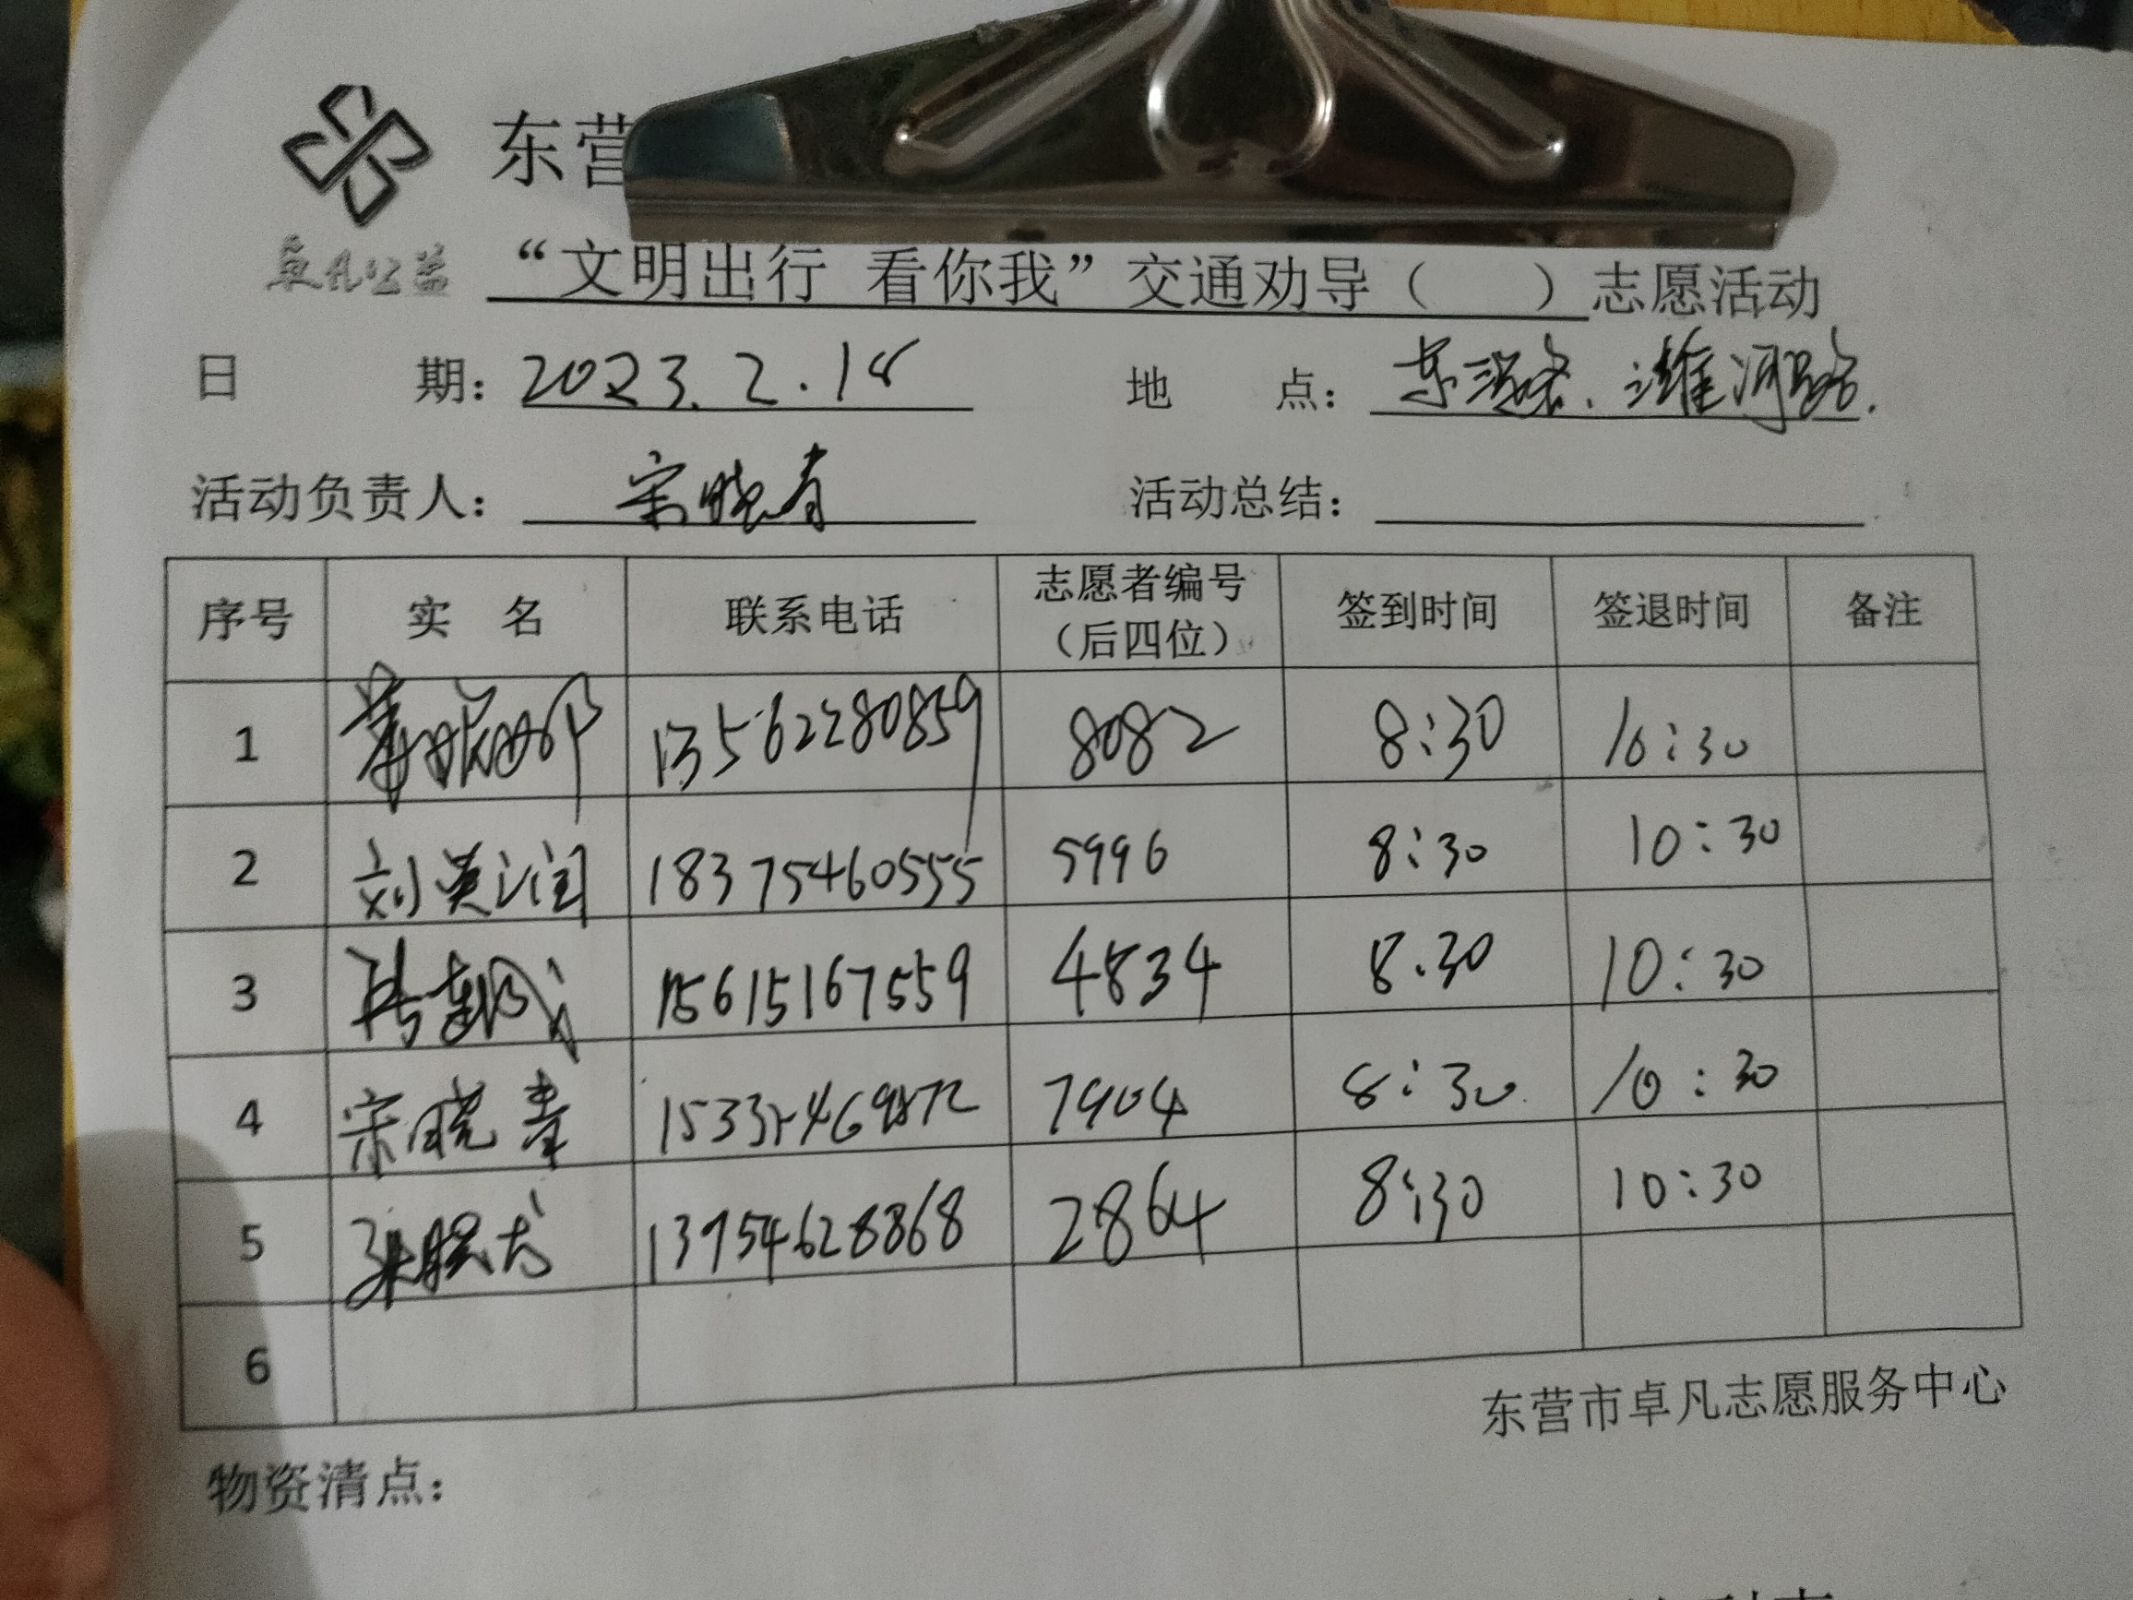 东营
卓凡公益
“文明出行 看你我”交通劝导（ ）志愿活动
日 期：2023.2.18 地 点：潍河路.
活动负责人：宋晓春 活动总结：
序号 实 名 联系电话 志愿者编号（后四位） 签到时间 签退时间 备注
1 13562280859 8082 8:30 10:30
2 刘英润 18375460555 5996 8:30 10:30
3 15615167559 4834 8.30 10:30
4 宋晓春 7904 8:30 10:30
5 13754628868 2864 8:30 10:30
6
东营市卓凡志愿服务中心
物资清点：